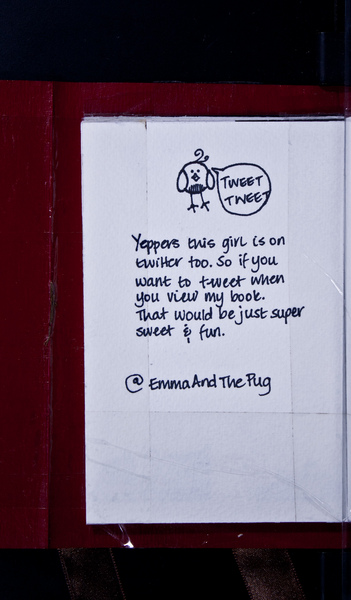 TWEET
TWEET
Yeppers this girl is on
twitter too. So if you
want to tweet when
you view my book.
That would be just super
sweet & fun.
@ EmmaAndThePug